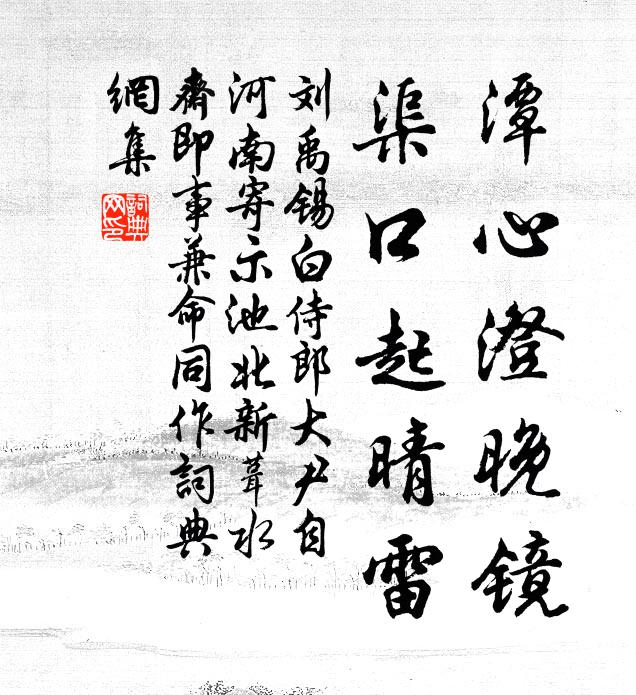 潭心澄晚镜
渠口起晴雷
刘禹锡白侍郎大尹自
河南寄示池北新葺水
斋即事兼命同作词典
網集
詞典网印